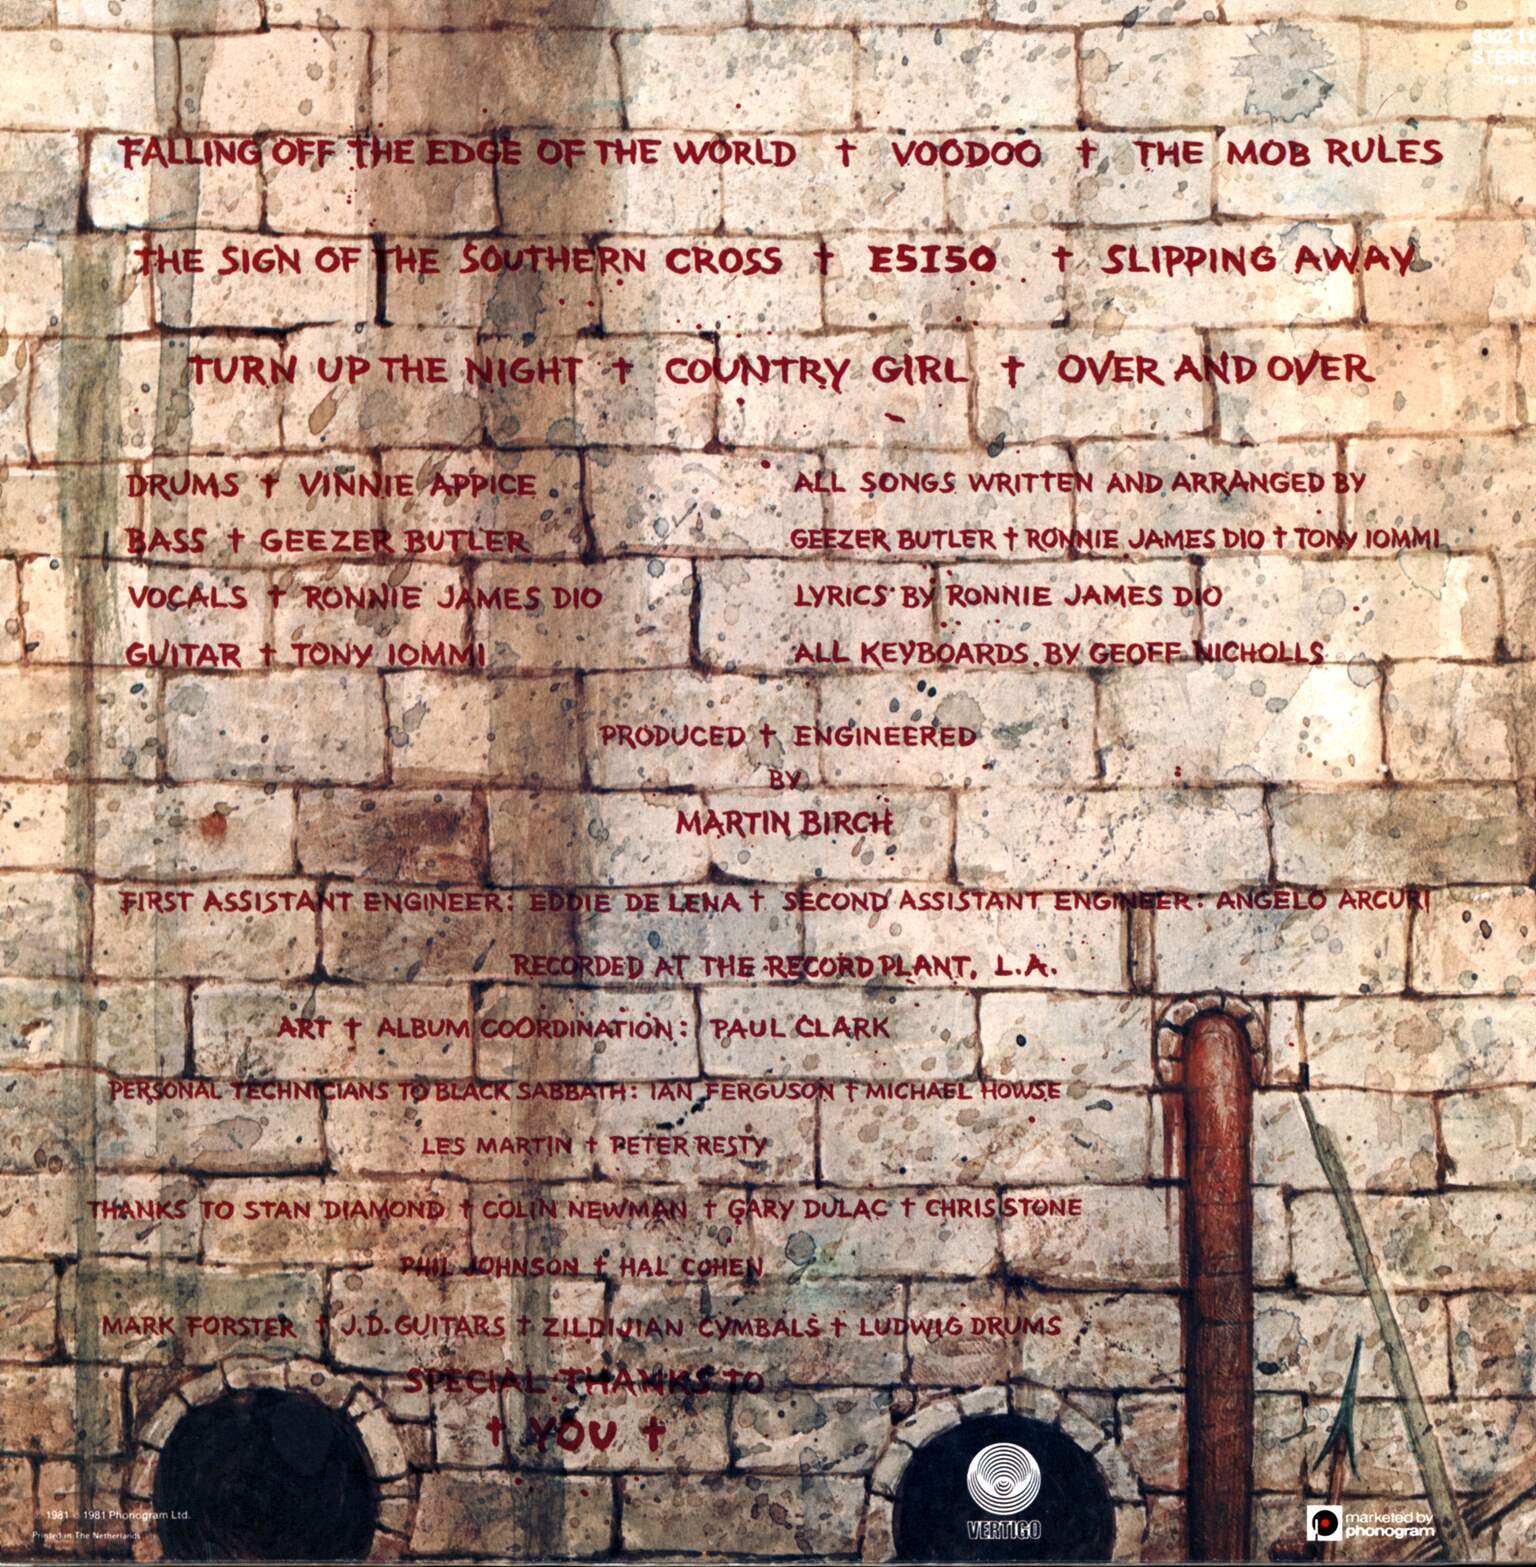 STEREO
FALLING OFF THE EDGE OF THE WORLD † VOODOO † THE MOB RULES
THE SIGN OF THE SOUTHERN CROSS † E5150 † SLIPPING AWAY
TURN UP THE NIGHT † COUNTRY GIRL † OVER AND OVER
DRUMS † VINNIE APPICE
BASS † GEEZER BUTLER
VOCALS † RONNIE JAMES DIO
GUITAR † TONY IOMMI
ALL SONGS WRITTEN AND ARRANGED BY
GEEZER BUTLER † RONNIE JAMES DIO † TONY IOMMI
LYRICS BY RONNIE JAMES DIO
ALL KEYBOARDS BY GEOFF NICHOLLS
PRODUCED † ENGINEERED
BY
MARTIN BIRCH
FIRST ASSISTANT ENGINEER: EDDIE DE LENA † SECOND ASSISTANT ENGINEER: ANGELO ARCURI
RECORDED AT THE RECORD PLANT, L.A.
ART † ALBUM COORDINATION: PAUL CLARK
PERSONAL TECHNICIANS TO BLACK SABBATH: IAN FERGUSON † MICHAEL HOWSE
LES MARTIN † PETER RESTY
THANKS TO STAN DIAMOND † COLIN NEWMAN † GARY DULAC † CHRIS STONE
PHIL JOHNSON † HAL COHEN
MARK FORSTER † J.D. GUITARS † ZILDIJIAN CYMBALS † LUDWIG DRUMS
SPECIAL THANKS TO
† YOU †
1981 © 1981 Phonogram Ltd.
Printed in The Netherlands
VERTIGO
marketed by
phonogram